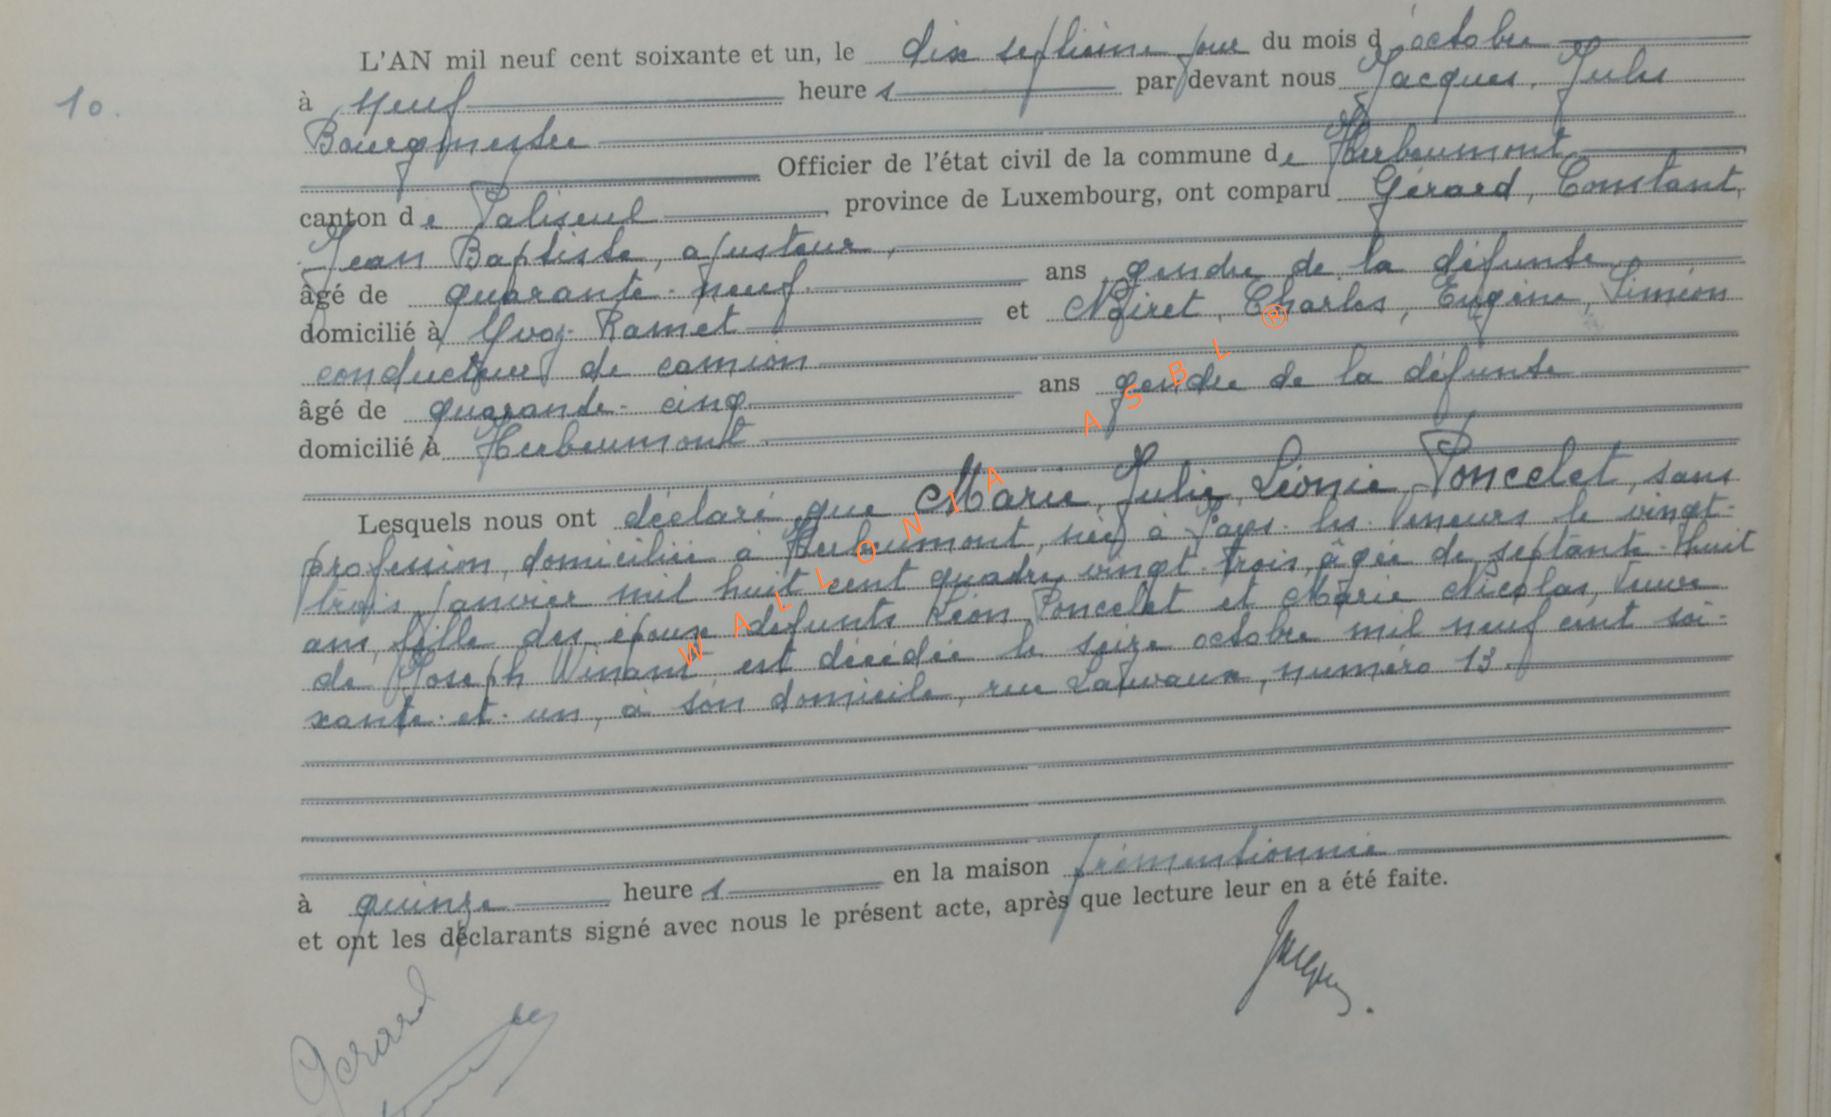 L'AN mil neuf cent soixante et un, le dix septième jour du mois d'octobre
10.
à neuf heures par devant nous Jacques, Jules
Bourgmestre
Officier de l'état civil de la commune de Herbeumont
canton de Paliseul, province de Luxembourg, ont comparu Gérard, Constant,
Jean Baptiste, ajusteur,
âgé de quarante-neuf ans gendre de la défunte
domicilié à Yvoz-Ramet et Noiret, Charles, Eugène, Siméon
conducteur de camion
âgé de quarante-cinq ans gendre de la défunte
domicilié à Herbeumont.
Lesquels nous ont déclaré que Marie, Julie, Léonie, Poncelet, sans
profession, domiciliée à Herbeumont, née à Fays-les-Veneurs le vingt-
trois janvier mil huit cent quatre vingt-trois, âgée de septante-huit
ans, fille des époux défunts Léon Poncelet et Marie Nicolas, veuve
de Joseph Winant est décédée le seize octobre mil neuf cent soi-
xante-et-un, à son domicile, rue Lauvaux, numéro 13.
à quinze heures en la maison prémentionnée
et ont les déclarants signé avec nous le présent acte, après que lecture leur en a été faite.
Jacques.
Gérard
WALLONIA ASBL ®